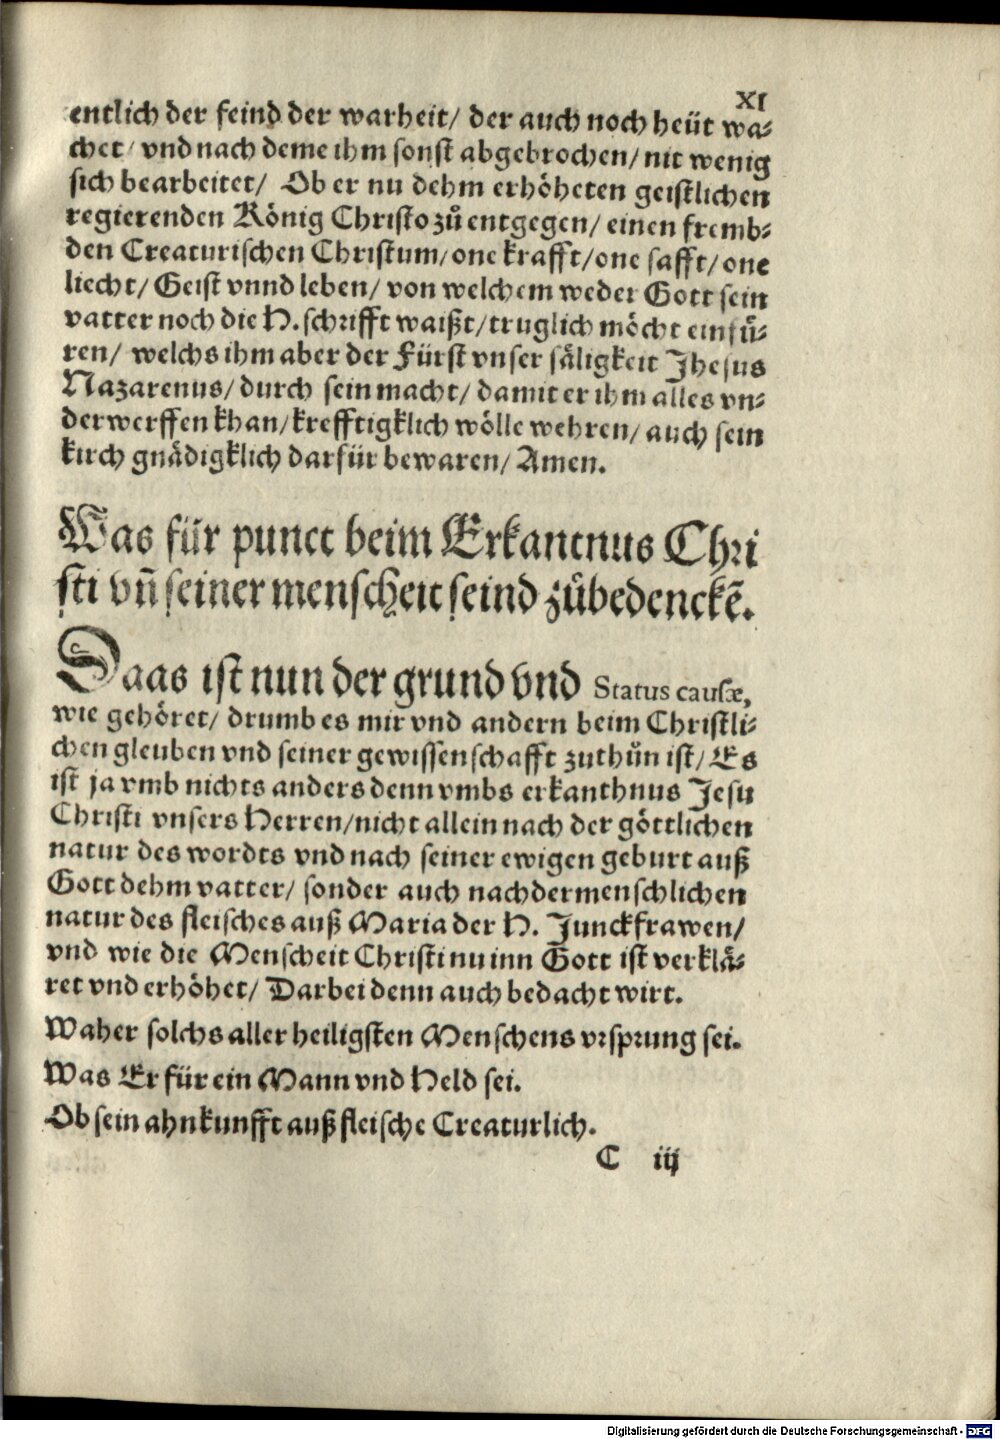 XI
entlich der feind der warheit/ der auch noch heüt wa⸗
chet/ vnd nach deme ihm sonst abgebrochen/ nit wenig
sich bearbeitet/ Ob er nu dehm erhöheten geistlichen
regierenden König Christo zů entgegen/ einen fremb⸗
den Creaturischen Christum/ one krafft/ one safft/ one
liecht/ Geist vnnd leben/ von welchem weder Gott sein
vatter noch die H. schrifft waißt/ truglich möcht einfü⸗
ren/ welchs ihm aber der Fürst vnser säligkeit Jhesus
Nazarenus/ durch sein macht/ damit er ihm alles vn⸗
derwerffen khan/ krefftigklich wölle wehren/ auch sein
kirch gnädigklich darfür bewaren/ Amen.
Was für punct beim Erkantnus Chri
sti vñ seiner menscheit seind zůbedenckẽ.
Daas ist nun der grund vnd Status causæ,
wie gehöret/ drumb es mir vnd andern beim Christli⸗
chen gleuben vnd seiner gewissenschafft zuthůn ist/ Es
ist ja vmb nichts anders denn vmbs erkanthnus Jesu
Christi vnsers Herren/ nicht allein nach der göttlichen
natur des wordts vnd nach seiner ewigen geburt auß
Gott dehm vatter/ sonder auch nach der menschlichen
natur des fleisches auß Maria der H. Junckfrawen/
vnd wie die Menscheit Christi nu inn Gott ist verklä⸗
ret vnd erhöhet/ Darbei denn auch bedacht wirt.
Waher solchs aller heiligsten Menschens vrsprung sei.
Was Er für ein Mann vnd Held sei.
Ob sein ahnkunfft auß fleische Creaturlich.
C iij
Digitalisierung gefördert durch die Deutsche Forschungsgemeinschaft - DFG